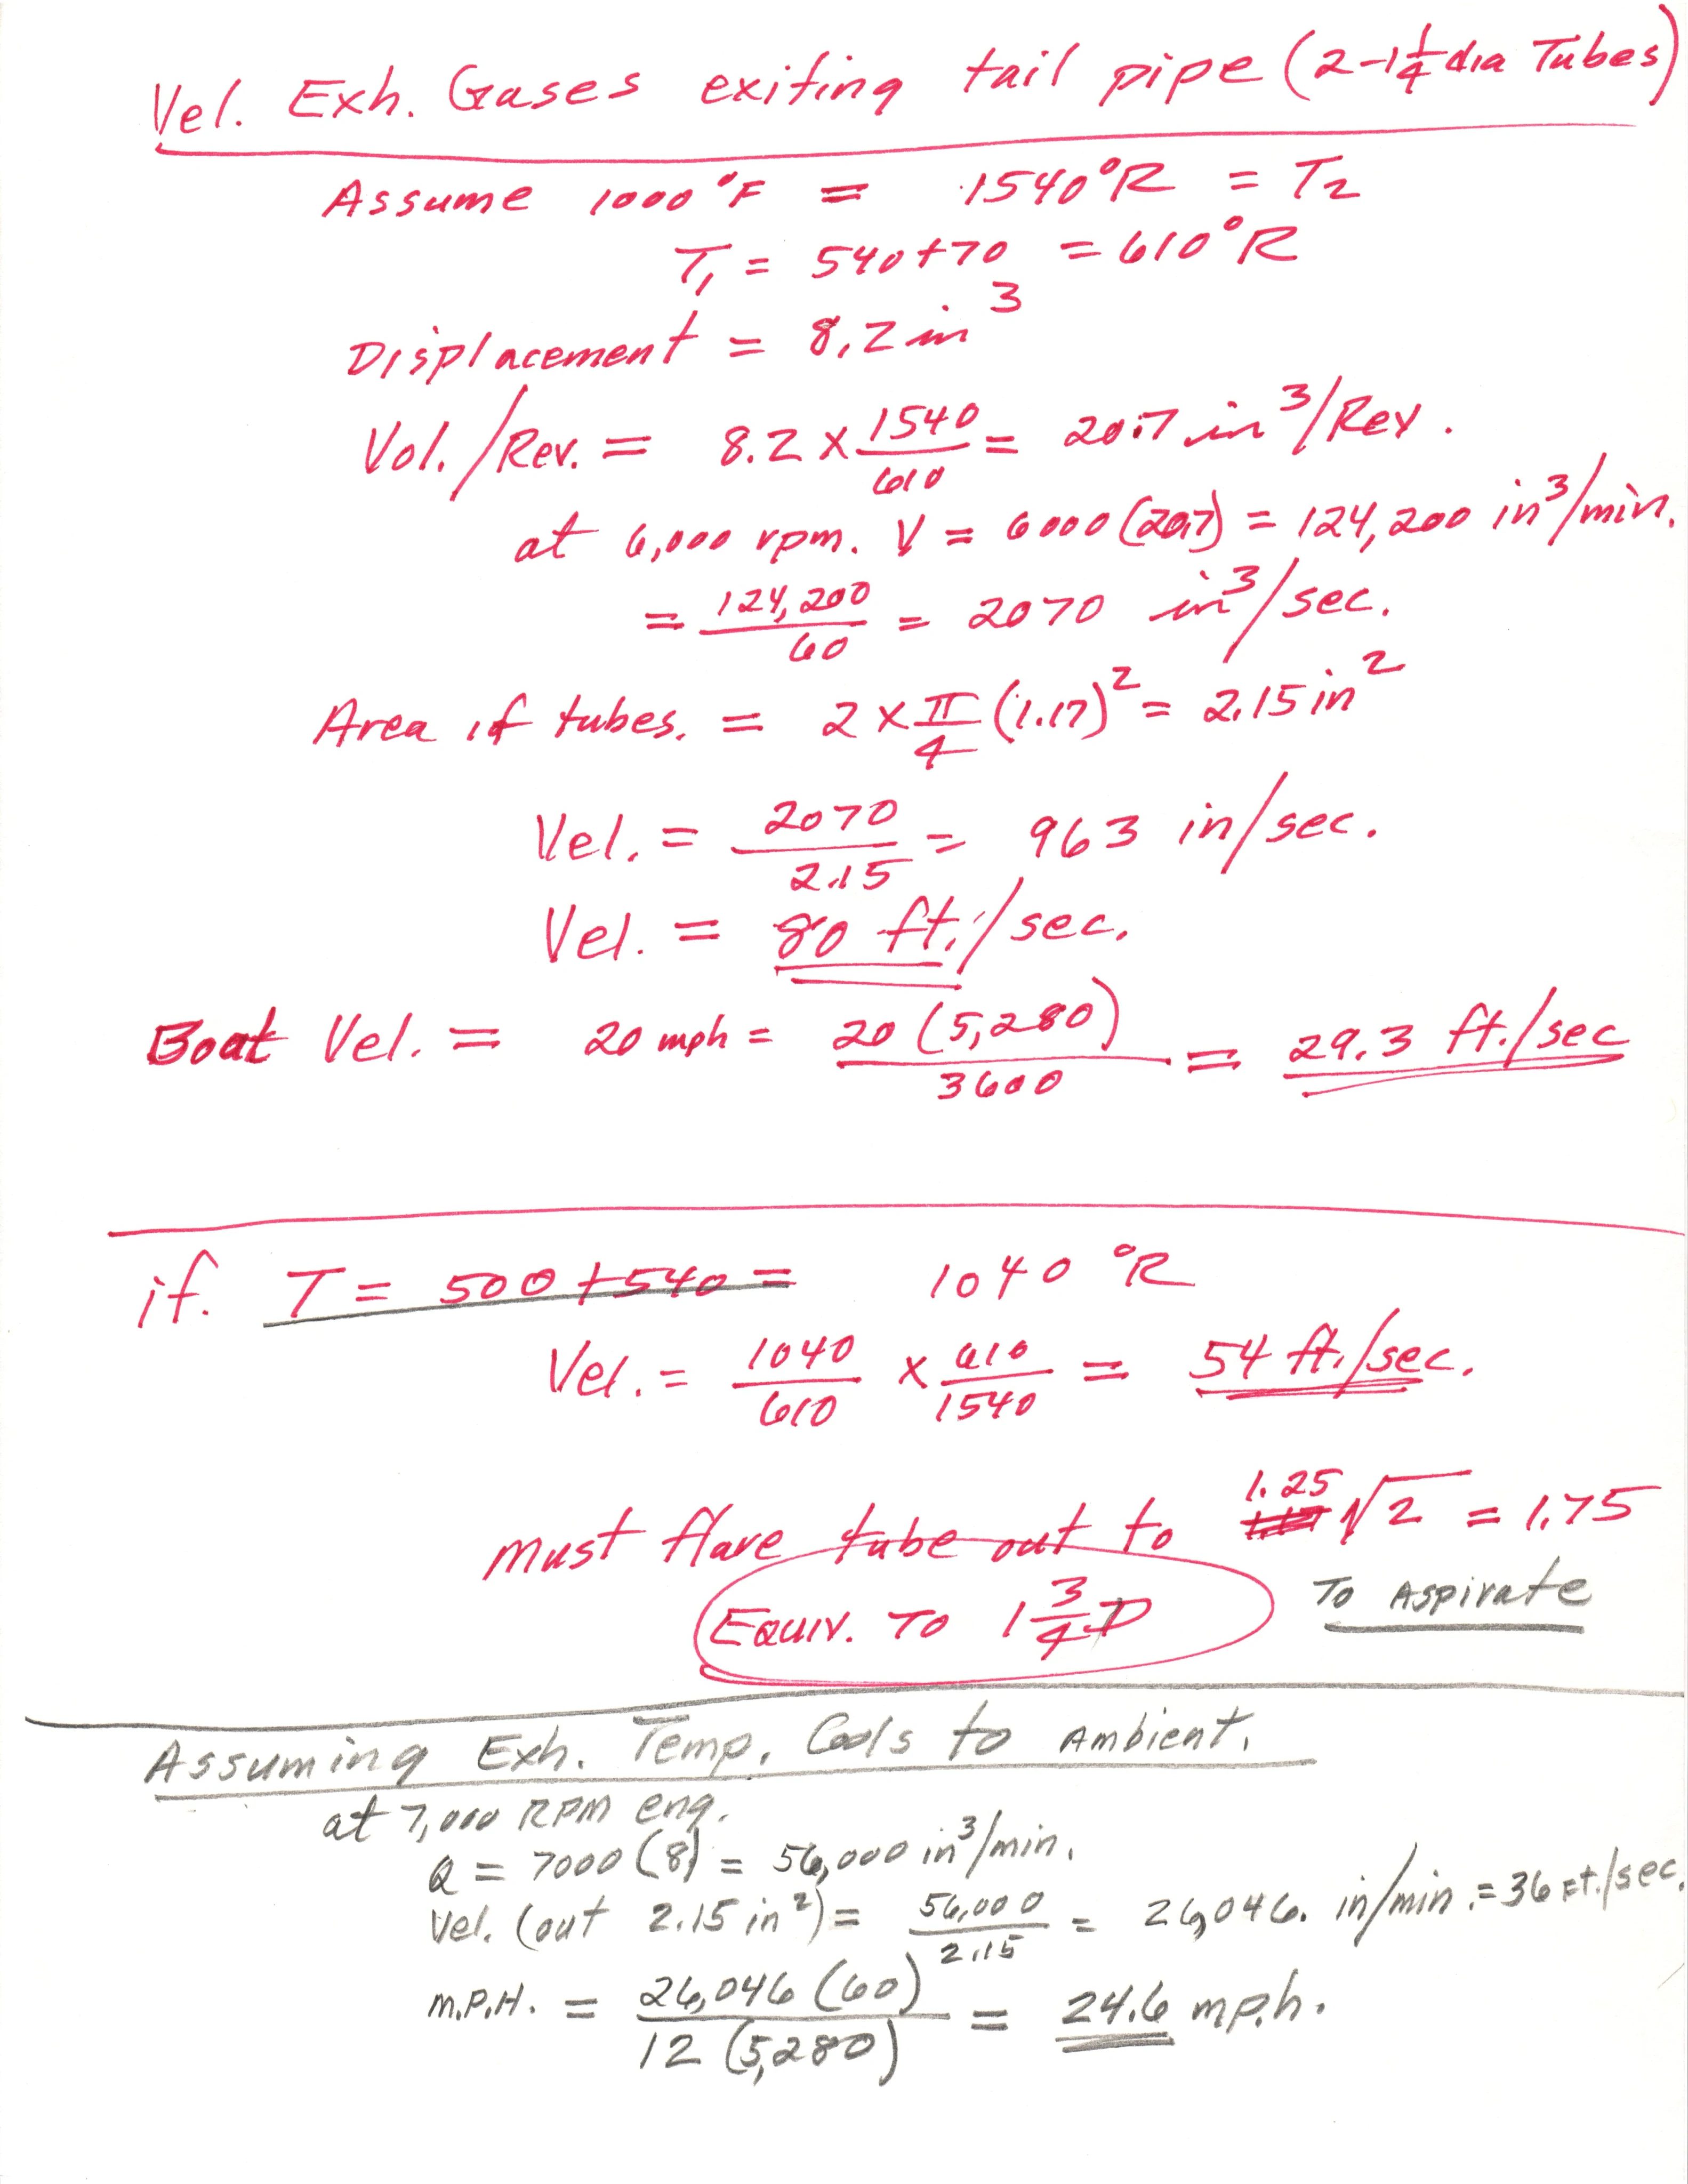 Vel. Exh. Gases exiting tail pipe (2-1 1/4 dia Tubes)
Assume 1000°F = 1540°R = T2
T1 = 540+70 = 610°R
Displacement = 8.2 in³
Vol./Rev. = 8.2 x 1540/610 = 20.7 in³/Rev.
at 6,000 rpm. V = 6000(20.7) = 124,200 in³/min.
= 124,200/60 = 2070 in³/sec.
Area if tubes. = 2 x π/4 (1.17)² = 2.15 in²
Vel. = 2070/2.15 = 963 in/sec.
Vel. = 80 ft./sec.
Boat Vel. = 20 mph = 20(5,280)/3600 = 29.3 ft./sec
if. T = 500+540 = 1040 °R
Vel. = 1040/610 x 610/1540 = 54 ft./sec.
Must flare tube out to 1.25 √2 = 1.75
Equiv. To 1 3/4 D To Aspirate
Assuming Exh. Temp. Cools to Ambient.
at 7,000 RPM eng.
Q = 7000(8) = 56,000 in³/min.
Vel. (out 2.15 in²) = 56,000/2.15 = 26,046. in/min. = 36 Ft./sec.
m.P.H. = 26,046(60)/12(5,280) = 24.6 m.p.h.